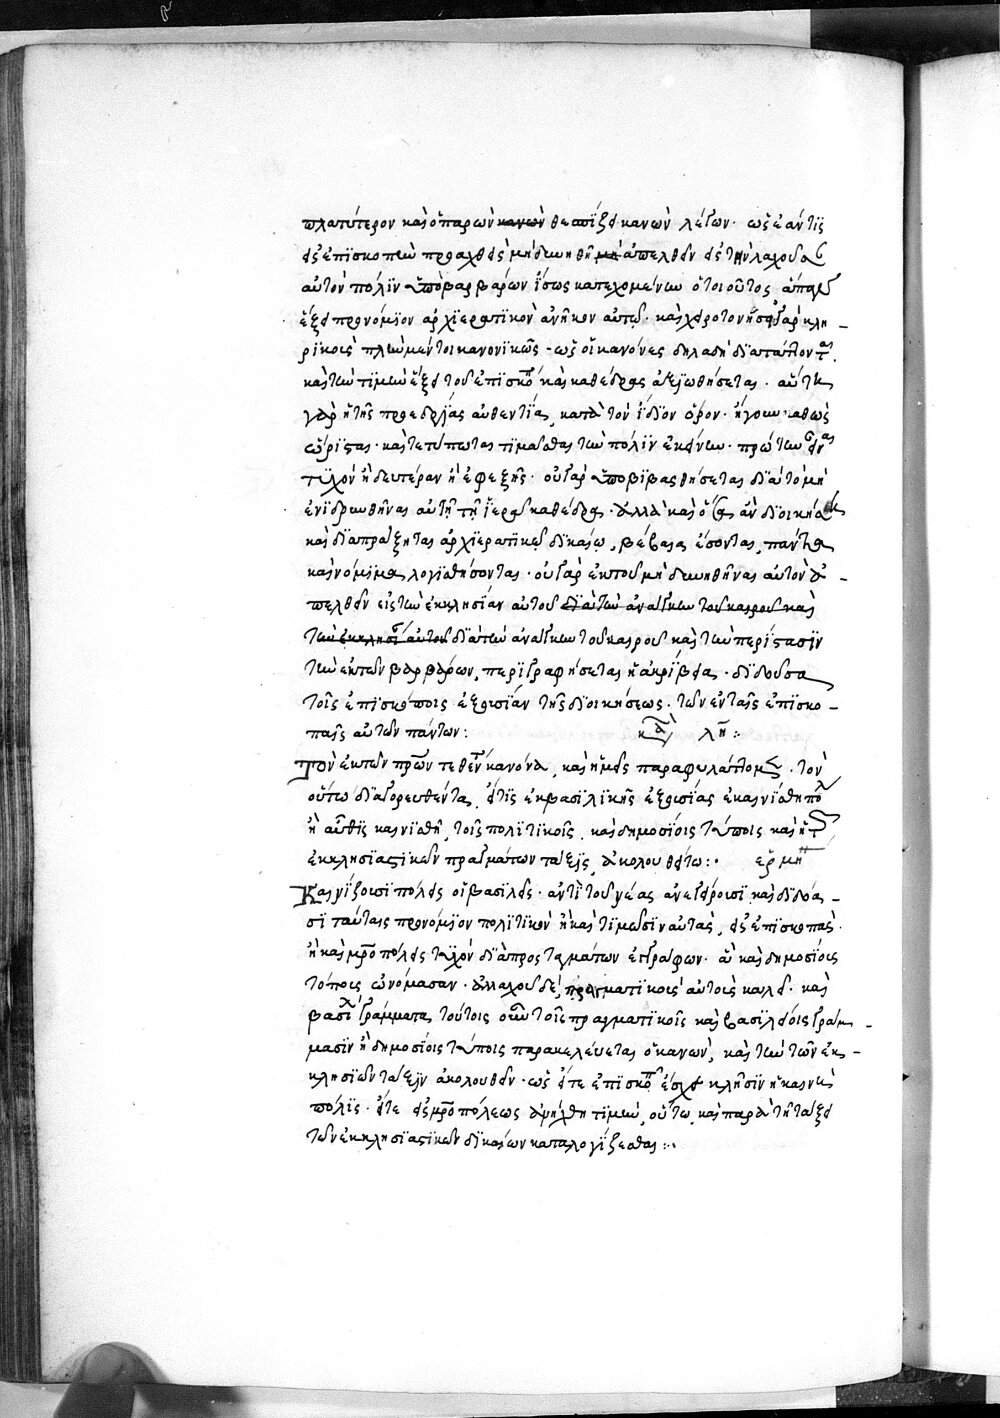 πλατύτερον καὶ ὁ παρὼν κανὼν θεσπίζει κανὼν λέγων· ὡς ἐάν τις
εἰς ἐπισκοπὴν προαχθεὶς μὴ δυνηθῇ μὴ ἀπελθεῖν εἰς τὴν λαχοῦσαν
αὐτὸν πόλιν ὑπὸ βαρβάρων ἴσως κατεχομένην ὅτι οὗτος ἅπαν
ἕξει προνόμιον ἀρχιερατικὸν ἀνῆκον αὐτῷ· καὶ χειροτονήσει γὰρ κλη-
ρικοὺς πλὴν μέντοι κανονικῶς· ὡς οἱ κανόνες δηλαδὴ διατάττονται.
καὶ τὴν τιμὴν ἕξει τοῦ ἐπισκόπου καὶ καθέδρας ἀξιωθήσεται. αὕτη
γὰρ ἡ τῆς προεδρίας αὐθεντία, κατὰ τὸν ἴδιον ὅρον· ἤγουν καθὼς
ὥρισται· καὶ τετύπωται τιμᾶσθαι τὴν πόλιν ἐκείνην· πρώτην εἶναι
τυχὸν ἢ δευτέραν ἢ ἐφεξῆς· οὐ γὰρ ὑποβιβασθήσεται διὰ τὸ μὴ
ἐνιδρυνθῆναι αὐτῇ τῇ ἱερᾷ καθέδρᾳ. ἀλλὰ καὶ ὅσα ἂν διοικήσῃ
καὶ διαπράξηται ἀρχιερατικῷ δικαίῳ, βέβαια ἔσονται, πάντα
καὶ νόμιμα λογισθήσονται. οὐ γὰρ ἐκ τοῦ μὴ δυνηθῆναι αὐτὸν ἀ-
πελθεῖν εἰς τὴν ἐκκλησίαν αὐτοῦ διὰ τὴν ἀνάγκην τοῦ καιροῦ καὶ
τὴν ἐκκλησίαν αὐτοῦ διὰ τὴν ἀνάγκην τοῦ καιροῦ καὶ τὴν περίστασιν
τὴν ἐκ τῶν βαρβάρων, περιγραφήσεται ἡ ἀκρίβεια· διδοῦσα
τοῖς ἐπισκόποις ἐξουσίαν τῆς διοικήσεως· τῶν ἐν ταῖς ἐπισκο-
παῖς αὐτῶν πάντων: κα λη:
Τὸν ἐκ τῶν πρῶν τεθέντα κανόνα, καὶ ἡμεῖς παραφυλάττομεν. τὸν
οὕτω διαγορευθέντα, εἴ τις ἐκ βασιλικῆς ἐξουσίας ἐκαινίσθη πόλις
ἢ αὖθις καινισθῇ, τοῖς πολιτικοῖς, καὶ δημοσίοις τύποις καὶ ἡ τῶν
ἐκκλησιαστικῶν πραγμάτων τάξις, ἀκολουθείτω:· ἑρμη
Καινίζουσι πόλεις οἱ βασιλεῖς· ἀντὶ τοῦ νέας ἀνεγείρουσι καὶ διδόα-
σι ταύταις προνόμιον πολιτικὸν ἢ καὶ τιμῶσιν αὐτὰς, εἰς ἐπισκοπάς·
ἢ καὶ μροπόλεις τυχὸν διὰ προσταγμάτων ἐγγράφων· ἃ καὶ δημοσίοις
τύποις ὠνόμασαν· ἀλλαχοῦ δὲ, πραγματικοὺς αὐτοὺς καλεῖ· καὶ
βασιλ γράμματα, τούτοις οὖν τοῖς πραγματικοῖς καὶ βασιλείοις γράμ-
μασιν ἢ δημοσίοις τύποις παρακελεύεται ὁ κανών, καὶ τὴν τῶν ἐκ-
κλησιῶν τάξιν ἀκολουθεῖν· ὡς εἴτε ἐπισκοπ ἔσχε κλῆσιν ἡ καινὴ
πόλις· εἴτε εἰς μροπόλεως ἀνήχθη τιμὴν, οὕτω καὶ παρὰ τῇ τάξει
τῶν ἐκκλησιαστικῶν δικαίων καταλογίζεσθαι:·